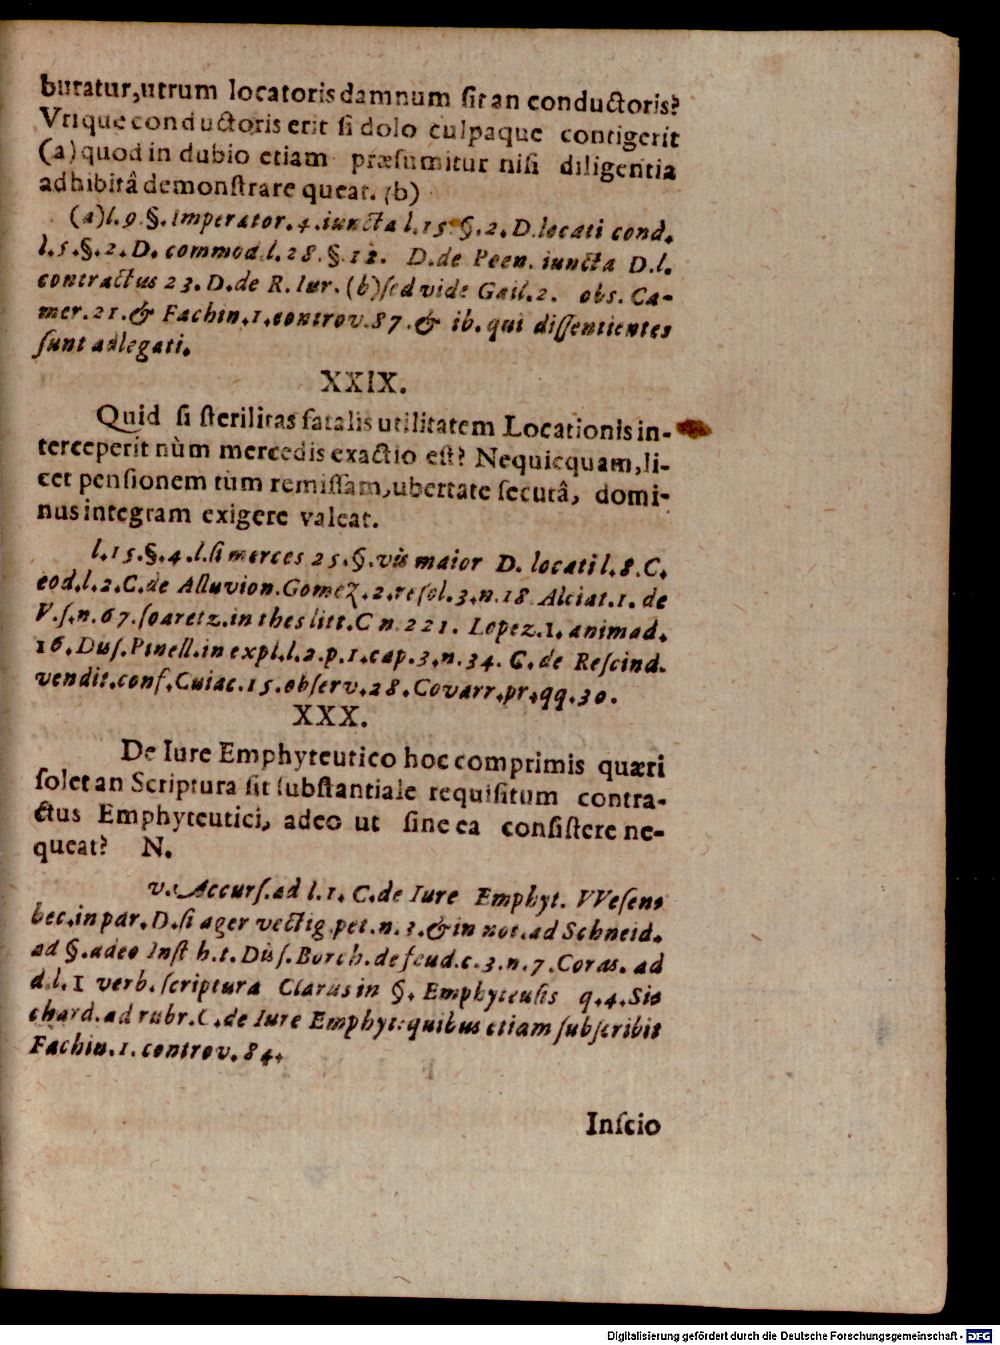 buratur,utrum locatoris damnum sit an conductoris?
Vtique conductoris erit si dolo culpaque contigerit
(a) quod in dubio etiam præsumitur nisi diligentia
adhibitâ demonstrare queat. (b)
(a) l. 9. §. Imperator. 4. iuncta l. 15. §. 2. D. locati cond.
l. 5. §. 2. D. commod. l. 28. §. 12. D. de Peen. iuncta D. l.
contractus 23. D. de R. Iur. (b) sed vide Gail. 2. obs. Ca-
mer. 21. & Fachin. 1. controv. 87. & ib. qui dissentientes
sunt adlegati.
XXIX.
Quid si sterilitas fatalis utilitatem Locationis in-
terceperit nùm mercedis exactio est? Nequicquam, li-
cet pensionem tùm remissam, ubertate secutâ, domi-
nus integram exigere valeat.
l. 15. §. 4. l. si merces 25. §. vis maior D. locati l. 8. C.
eod. l. 2. C. de Alluvion. Gomez. 2. resol. 3. n. 18 Alciat. 1. de
V. s. n. 67. soaretz. in thes litt. C n 221. Lopez. 1. animad.
16. Dus. Pinell. in expl. l. 2. p. 1. cap. 3. n. 34. C. de Rescind.
vendit. conf. Cuiac. 15. observ. 28. Covarr. pr. qq. 30.
XXX.
De Iure Emphyteutico hoc comprimis quæri
solet an Scriptura sit substantiale requisitum contra-
ctus Emphyteutici, adeo ut sine ea consistere ne-
queat? N.
v. Accurs. ad l. 1. C. de Iure Emphyt. VVesens
bec. in par. D. si ager vectig. pet. n. 3. & in not. ad Schneid.
ad §. adeo Inst h. t. Dus. Borch. de feud. c. 3. n. 7. Coras. ad
d. l. 1 verb. scriptura Clarus in §. Emphyteusis q. 4. Sic
chard. ad rubr. C. de Iure Emphyt: quibus etiam subscribit
Fachin. 1. controv. 84.
Inscio
Digitalisierung gefördert durch die Deutsche Forschungsgemeinschaft - DFG